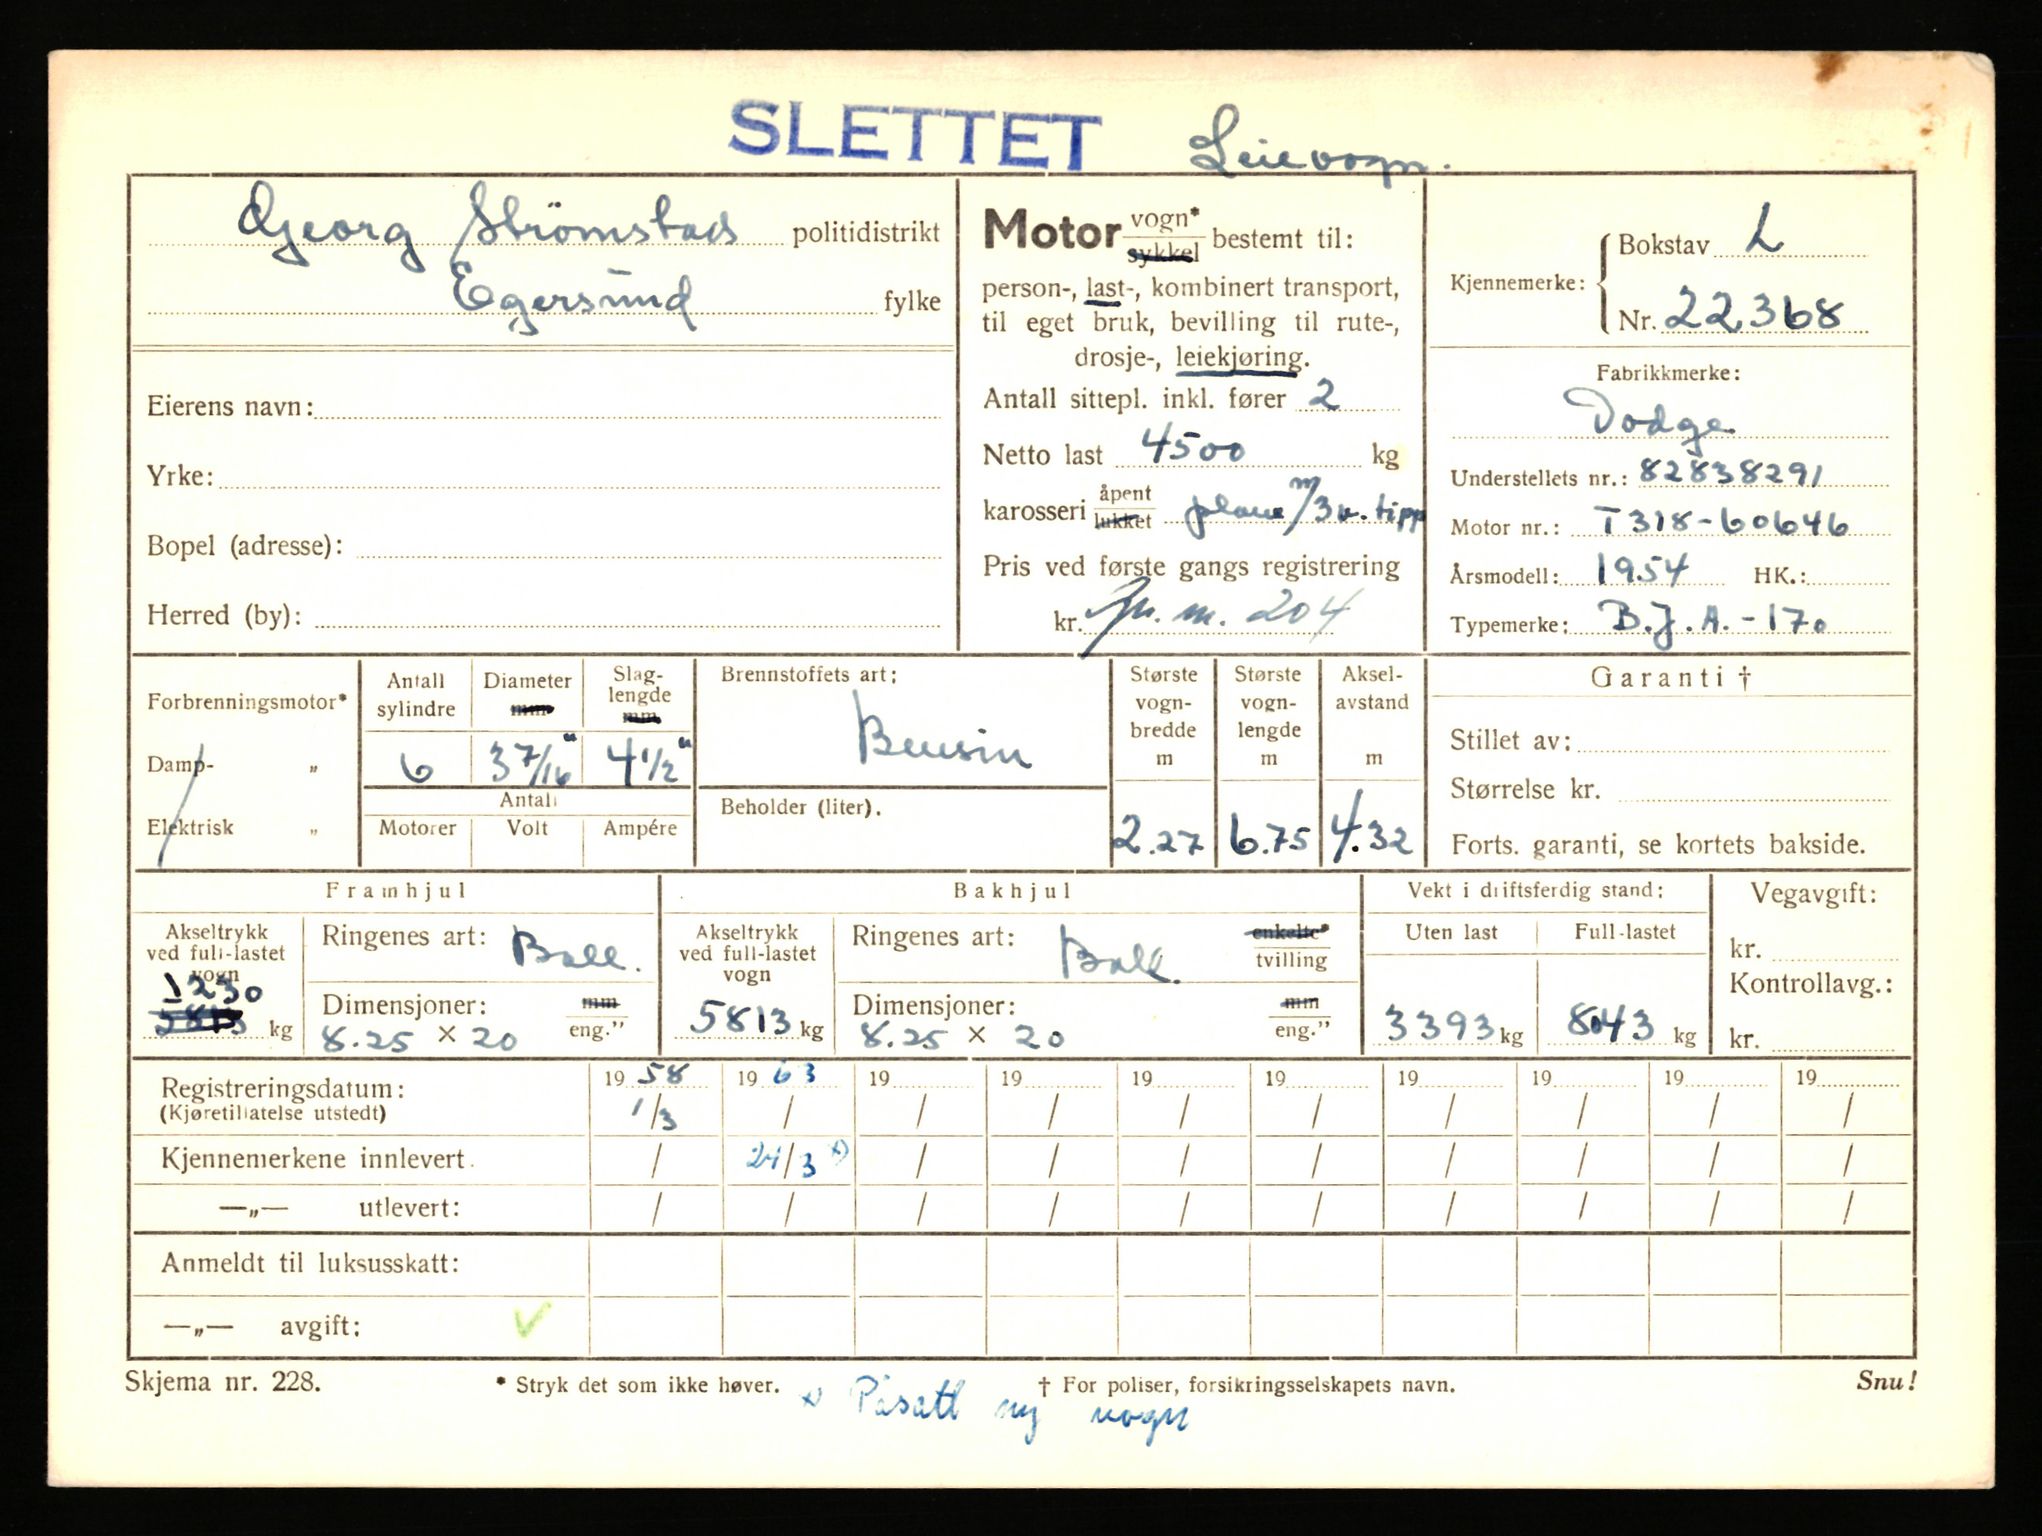 SLETTET Leievogn.
Georg Strömstad politidistrikt
Egersund fylke
Eierens navn:
Yrke:
Bopel (adresse):
Herred (by):
Motor vogn* sykkel bestemt til:
person-, last-, kombinert transport,
til eget bruk, bevilling til rute-,
drosje-, leiekjøring.
Antall sittepl. inkl. fører 2
Netto last 4500 kg
karosseri åpent lukket plane m/3 v. tipp
Pris ved første gangs registrering
kr. 204
Kjennemerke: Bokstav L
Nr. 22368
Fabrikkmerke:
Dodge
Understellets nr.: 82838291
Motor nr.: T318-60646
Årsmodell: 1954 HK.:
Typemerke: B.J.A.-170
Forbrenningsmotor*
Damp- „
Elektrisk „
Antall sylindre
6
Diameter mm
3 7/16"
Slag-lengde mm
4 1/2"
Antall
Motorer Volt Ampére
Brennstoffets art:
Bensin
Beholder (liter).
Største vogn-bredde m
2.27
Største vogn-lengde m
6.75
Aksel-avstand m
4.32
Garanti †
Stillet av:
Størrelse kr.
Forts. garanti, se kortets bakside.
Framhjul
Akseltrykk ved full-lastet vogn
1230
5813 kg
Ringenes art: Ball.
Dimensjoner: mm
8.25 x 20 eng."
Bakhjul
Akseltrykk ved full-lastet vogn
5813 kg
Ringenes art: Ball. enkelte* tvilling
Dimensjoner: mm
8.25 x 20 eng."
Vekt i driftsferdig stand:
Uten last Full-lastet
3393 kg 8043 kg
Vegavgift:
kr.
Kontrollavg.:
kr.
Registreringsdatum: 1958 1963 19 19 19 19 19 19 19 19
(Kjøretillatelse utstedt) 1/3 / / / / / / / / /
Kjennemerkene innlevert. / 24/3 x) / / / / / / / /
—„— utlevert: / / / / / / / / / /
Anmeldt til luksusskatt:
—„— avgift: ✓
Skjema nr. 228. * Stryk det som ikke høver. † For poliser, forsikringsselskapets navn. Snu!
x) Påsatt ny vogn